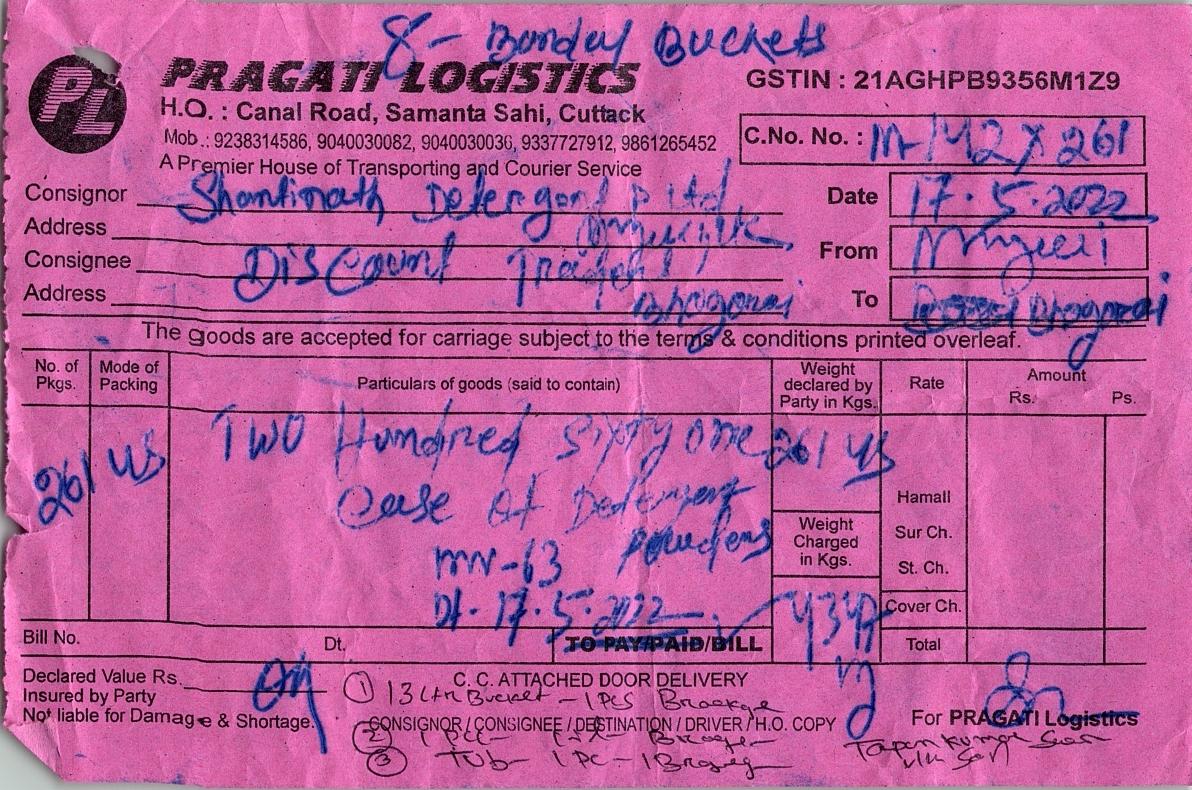 8 - Bondul Buckets
PL PRAGATI LOGISTICS
GSTIN : 21AGHPB9356M1Z9
H.O. : Canal Road, Samanta Sahi, Cuttack
Mob.: 9238314586, 9040030082, 9040030036, 9337727912, 9861265452
C.No. No. : M-142 x 261
A Premier House of Transporting and Courier Service
Consignor Shantinath Detergent P Ltd
Date 17.5.2022
Address
From
Consignee Discount
Address Bhogorai
To Bhogorai
The goods are accepted for carriage subject to the terms & conditions printed overleaf.
No. of Pkgs.
Mode of Packing
Particulars of goods (said to contain)
Weight declared by Party in Kgs.
Rate
Amount
Rs. Ps.
261 Two Hundred Sixty One 261
Case of Detergent
Powders
Hamall
Weight Charged in Kgs.
Sur Ch.
-63
St. Ch.
Dt. 17.5.2022
Cover Ch.
Bill No. Dt. TO PAY/PAID/BILL
Total
Declared Value Rs.
C. C. ATTACHED DOOR DELIVERY
Insured by Party
① 13 Ctn Bucket - 1 Pcs
Not liable for Damage & Shortage.
CONSIGNOR / CONSIGNEE / DESTINATION / DRIVER / H.O. COPY
For PRAGATI Logistics
②
③ Tub - 1 PC -
Tapan Kumar